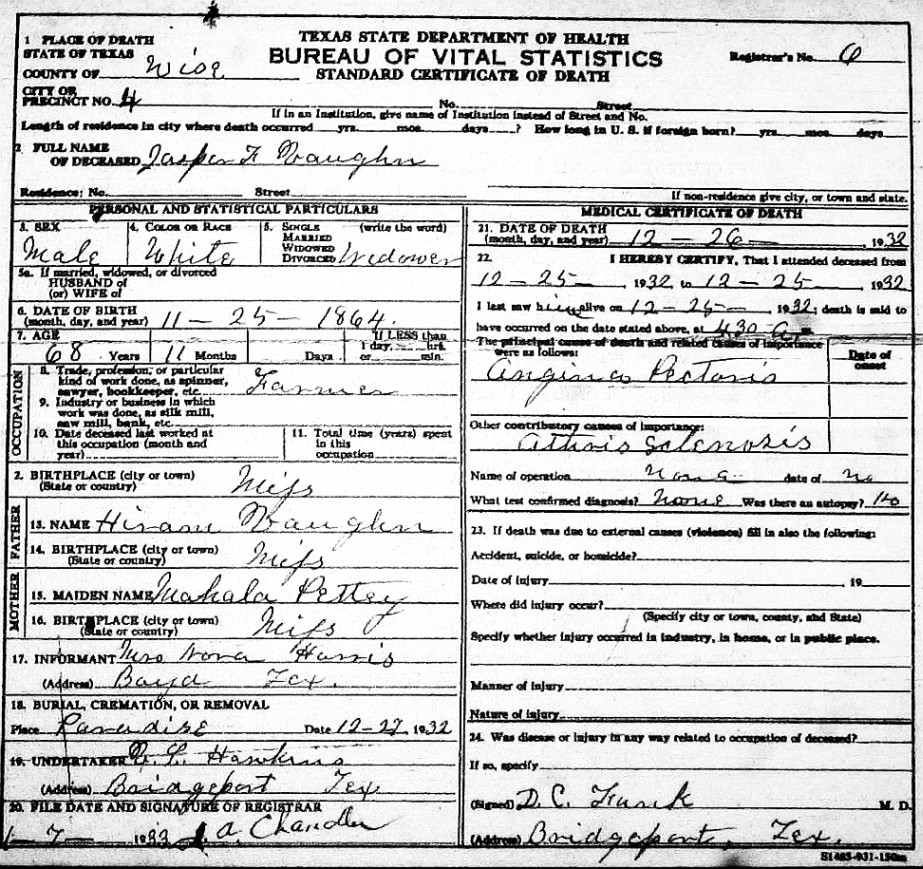 TEXAS STATE DEPARTMENT OF HEALTH
BUREAU OF VITAL STATISTICS
STANDARD CERTIFICATE OF DEATH
Registrar's No. 6
1 PLACE OF DEATH
STATE OF TEXAS
COUNTY OF Wise
CITY OR
PRECINCT NO. 4 No. Street
If in an Institution, give name of Institution instead of Street and No.
Length of residence in city where death occurred yrs. mos. days ? How long in U. S. if foreign born? yrs. mos. days
2. FULL NAME
OF DECEASED Jasper F Vaughn
Residence: No. Street
If non-residence give city, or town and state.
PERSONAL AND STATISTICAL PARTICULARS
3. SEX 4. COLOR OR RACE 5. SINGLE (write the word)
MARRIED
WIDOWED
DIVORCED
Male White Widower
5a. If married, widowed, or divorced
HUSBAND of
(or) WIFE of
6. DATE OF BIRTH
(month, day, and year) 11 - 25 - 1864.
7. AGE If LESS than
68 Years 11 Months Days 1 day, hrs.
or min.
OCCUPATION
8. Trade, profession, or particular
kind of work done, as spinner,
sawyer, bookkeeper, etc. Farmer
9. Industry or business in which
work was done, as silk mill,
saw mill, bank, etc.
10. Date deceased last worked at
this occupation (month and
year)
11. Total time (years) spent
in this
occupation
2. BIRTHPLACE (city or town)
(State or country) Miss
FATHER
13. NAME Hiram Vaughn
14. BIRTHPLACE (city or town)
(State or country) Miss
MOTHER
15. MAIDEN NAME Mahala Pettey
16. BIRTHPLACE (city or town)
(State or country) Miss
17. INFORMANT Mrs Nora Harris
(Address) Boyd Tex.
18. BURIAL, CREMATION, OR REMOVAL
Place Paradise Date 12-27 1932
19. UNDERTAKER L. Hawkins
(Address) Bridgeport Tex
20. FILE DATE AND SIGNATURE OF REGISTRAR
1 - 7 - 1933 J. A. Chandler
MEDICAL CERTIFICATE OF DEATH
21. DATE OF DEATH
(month, day, and year) 12 - 26 - 1932
22. I HEREBY CERTIFY, That I attended deceased from
12 - 25 - 1932 to 12 - 25 , 1932
I last saw him alive on 12 - 25 - , 1932; death is said to
have occurred on the date stated above, at 4:30 a m.
The principal cause of death and related causes of importance
were as follows:
Date of
onset
Angina Pectoris
Other contributory causes of importance:
athrio Sclerosis
Name of operation None date of no
What test confirmed diagnosis? None Was there an autopsy? No
23. If death was due to external causes (violence) fill in also the following:
Accident, suicide, or homicide?
Date of injury , 19
Where did injury occur?
(Specify city or town, county, and State)
Specify whether injury occurred in industry, in home, or in public place.
Manner of injury
Nature of injury
24. Was disease or injury in any way related to occupation of deceased?
If so, specify
(Signed) D. C. Funk M. D.
(Address) Bridgeport, Tex.
S1485-931-150m